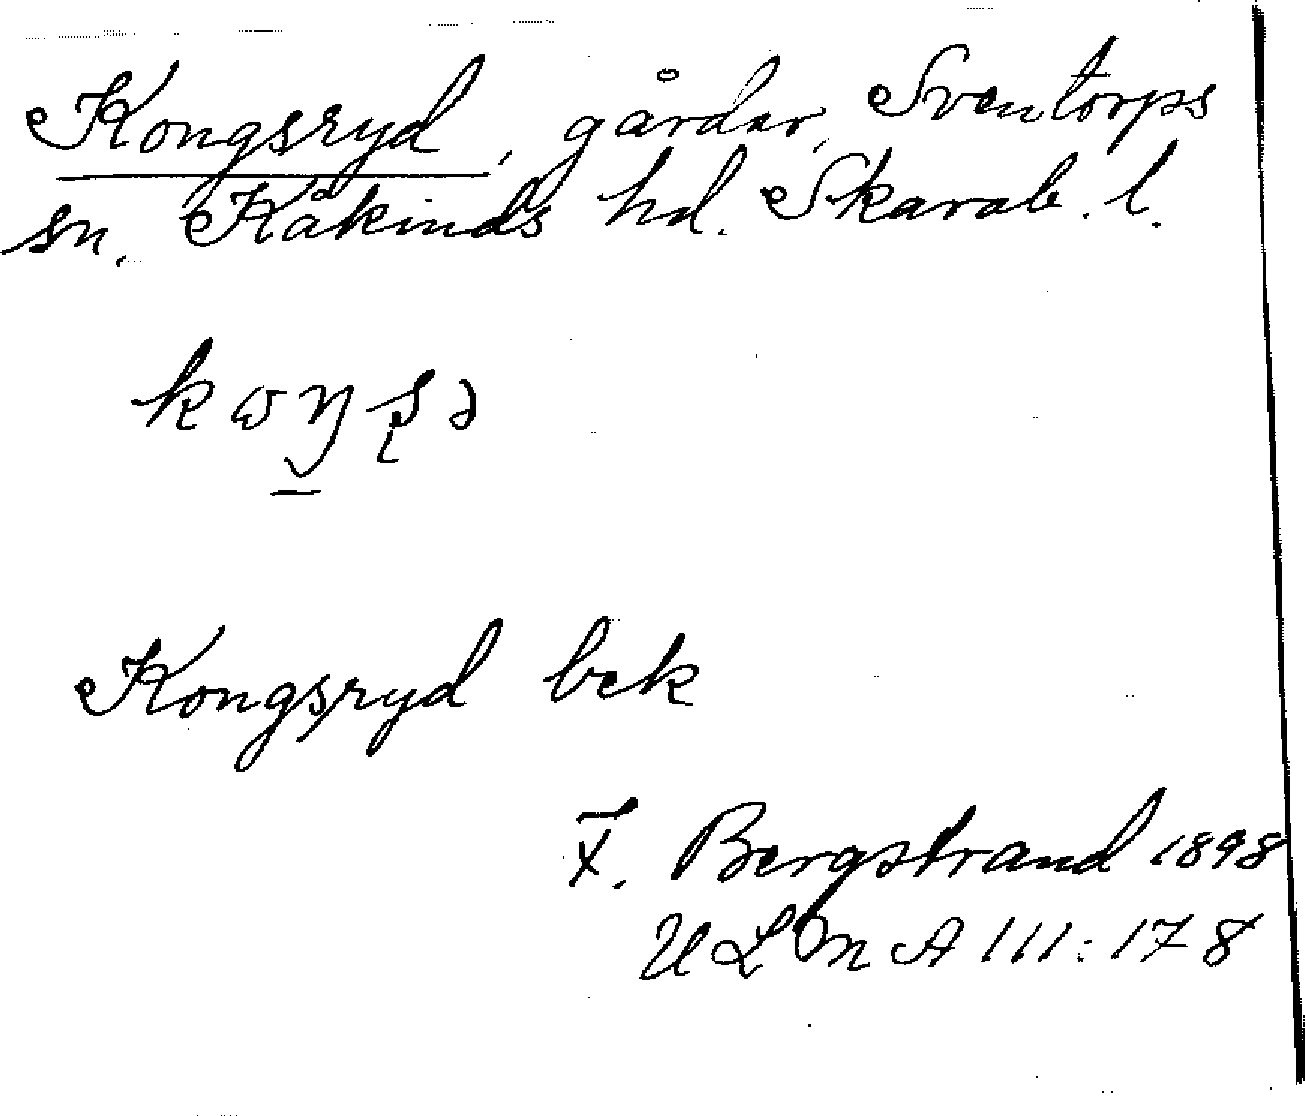 Kongsryd, gårdar, Sventorps
sn. Kåkinds hd. Skarab. l.
Kongsryd bek
F. Bergstrand 1898
ULMA 111:178